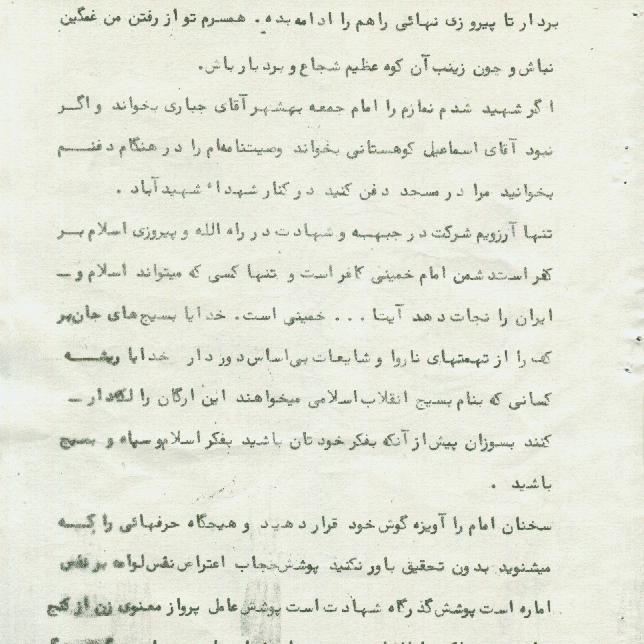 بردار تا پیروزی نهائی راهم را ادامه بده . همسرم تو از رفتن من غمگین
نباش و چون زینب آن کوه عظیم شجاع و بردبار باش.
اگر شهید شدم نمازم را امام جمعه بهشهر آقای جباری بخواند و اگر
نبود آقای اسماعیل کوهستانی بخواند وصیتنامه‌ام را در هنگام دفنم
بخوانید مرا در مسجد دفن کنید در کنار شهداء شهیدآباد .
تنها آرزویم شرکت در جبهه و شهادت در راه الله و پیروزی اسلام بر
کفر است دشمن امام خمینی کافر است و تنها کسی که میتواند اسلام و ـ
ایران را نجات دهد آیتا ... خمینی است. خدایا بسیج های جان‌بر
کف را از تهمتهای ناروا و شایعات بی‌اساس دور دار خدایا ریشه
کسانی که بنام بسیج انقلاب اسلامی میخواهند این ارگان را لکه‌دار ـ
کنند بسوزان پیش از آنکه بفکر خودتان باشید بفکر اسلام و سپاه و بسیج
باشید .
سخنان امام را آویزه گوش خود قرار دهید و هیچگاه حرفهائی را که
میشنوید بدون تحقیق باور نکنید پوشش حجاب اعتراض نفس لوامه بر نفس
اماره است پوشش گذرگاه شهادت است پوشش عامل پرواز معنوی زن از کنج